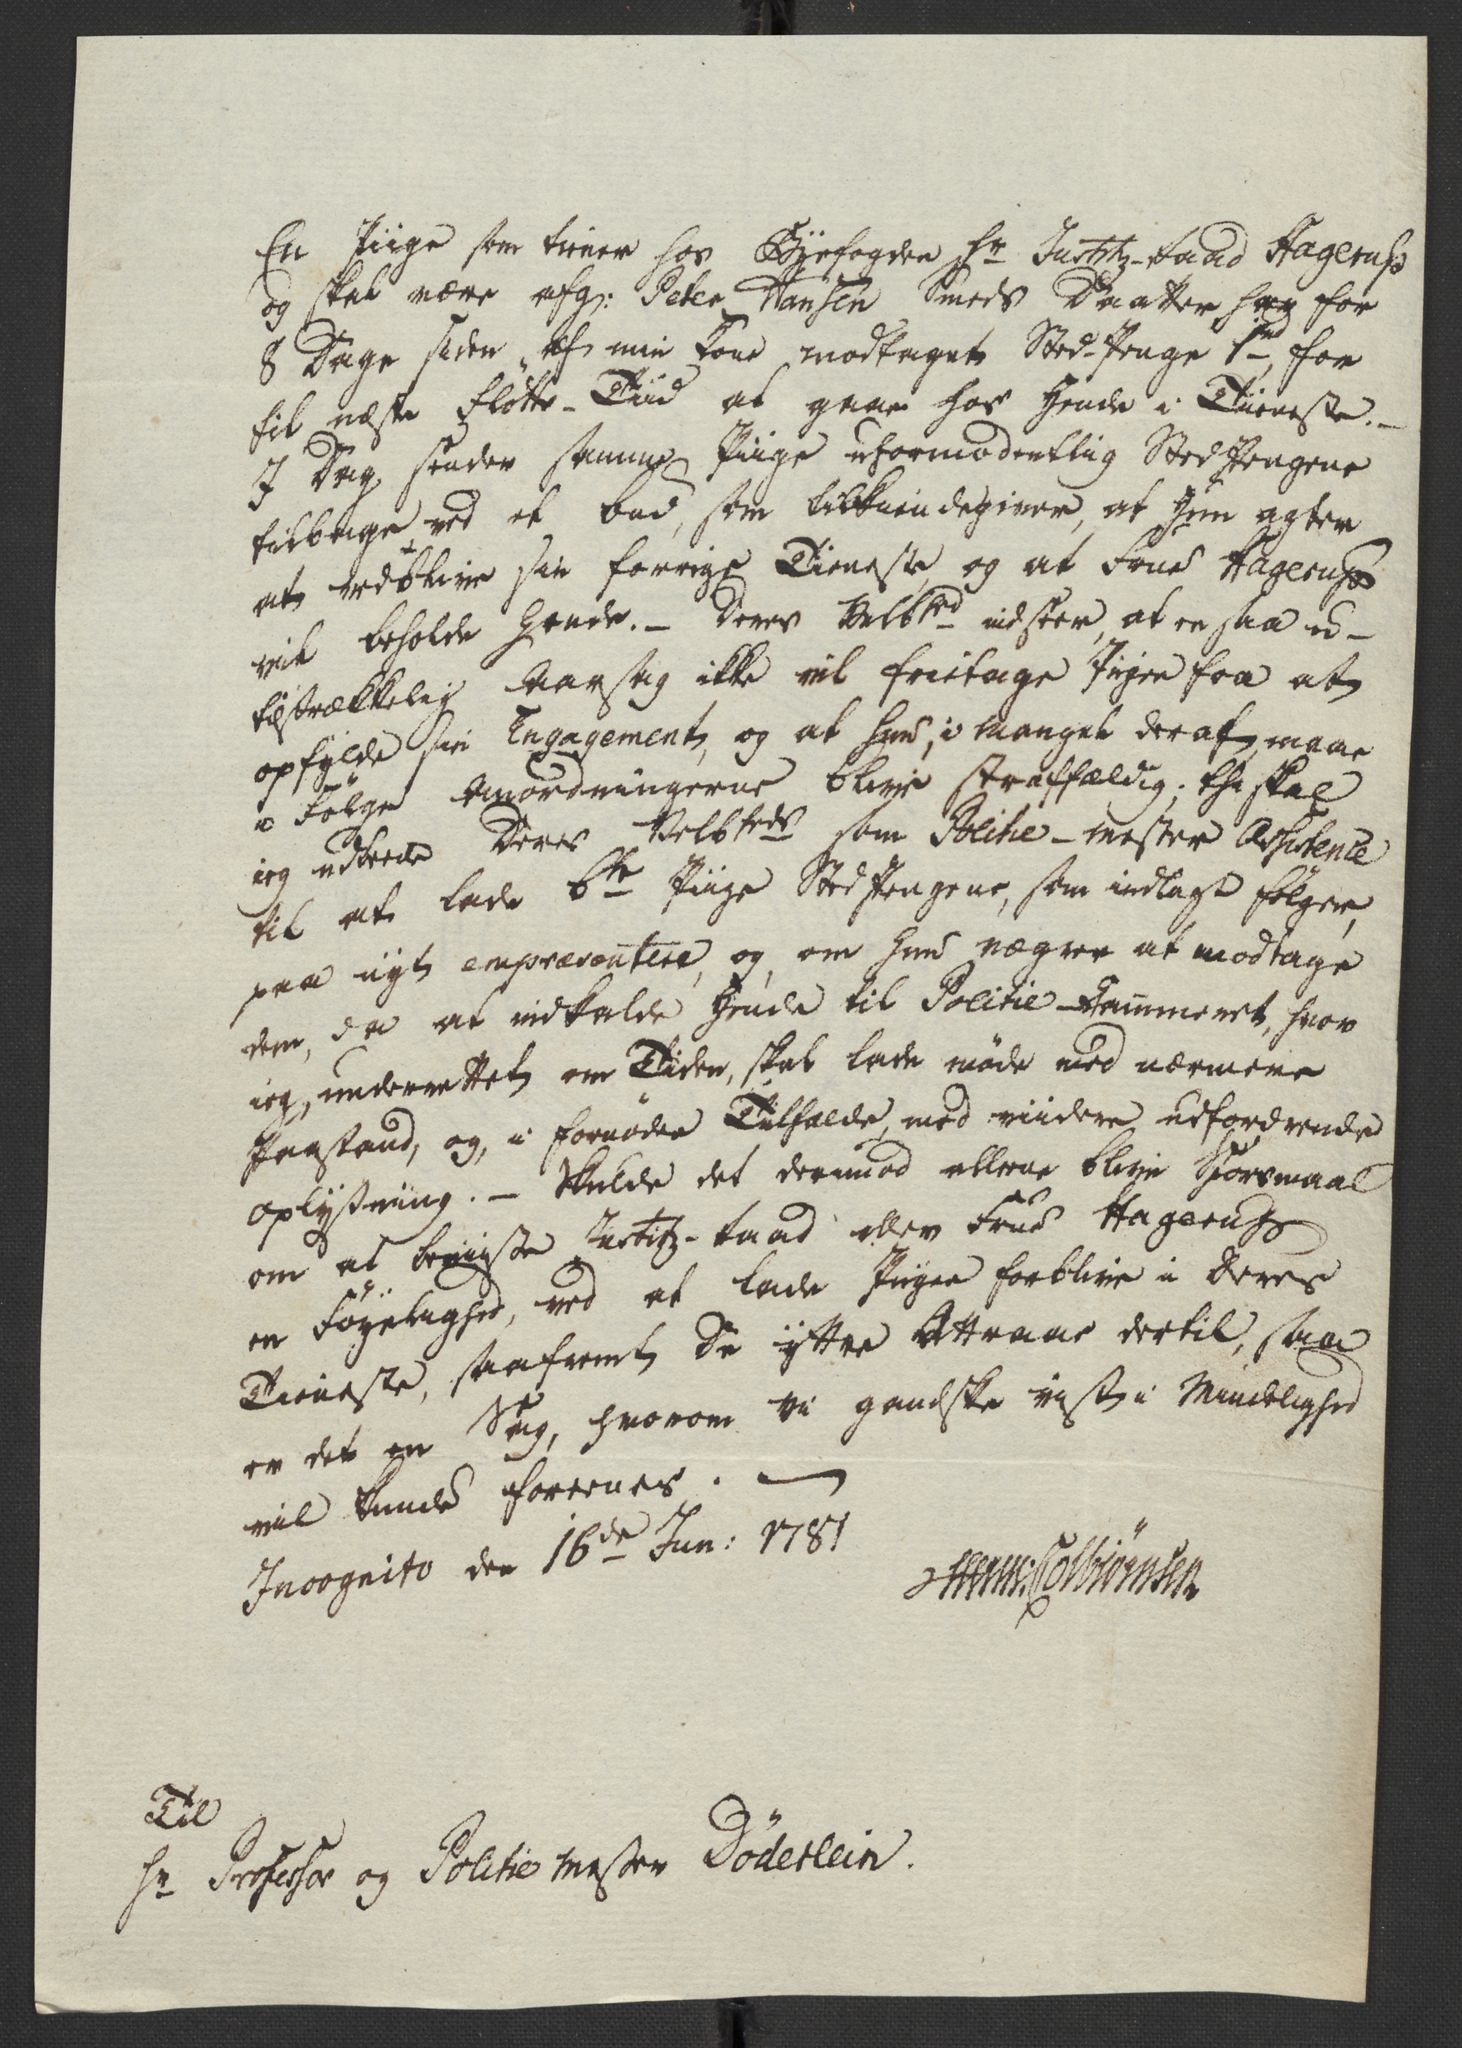 En Piige som tiener hos Byefogden Hr Justitz-Raad Hagerup
og skal være afg: Peter Hansen Smeds Daatter har for
8 Dage siden af min Kone modtaget Sted-Penge 1rd, for
til næste Flötte-Tiid at gaae hos Hende i Tieneste.-
I Dag sender samme Piige uformodentlig StedPengene
tilbage ved et Bud, som tilkiendegiver, at Hun agter
at vedblive sin forrige Tieneste og at Frue Hagerup
vil beholde Hende.- Deres Velbhd indseer, at en saa u-
tilstrækkelig Aarsag ikke vil frietage Pigen fra at
opfylde sin Engagement, og at hun, i Mangel deraf, maae
i Fölge Anordningerne blive straffældig; thi skal
ieg udbede Deres Velbheds som Politie-mester Assistence
til at lade bte Piige StedPengene, som indlagt fölger,
paa nyt empræsentere, og, om hun nægter at modtage
dem, da at indkalde Hende til Politie-Kammeret, hvor
ieg, underrettet om Tiden, skal lade møde med nærmere
Paastand, og, i fornøden Tilfælde, med viidere udfordrende
Oplysning.- Skulde det derimod allene blive Spörsmaal
om at beviise Justitz-Raad eller Frue Hagerup
en Föyelighed, ved at lade Pigen forblive i Deres
Tieneste, saafremt De yttre Attraae dertil, saa
er det en Sag, hvorom vi gandske vist i Mindelighed
vil kunde foreenes.
Incognito den 16de Jun: 1781
Colbiörnsen
Til
Hr Professor og Politiemester Döderlein.